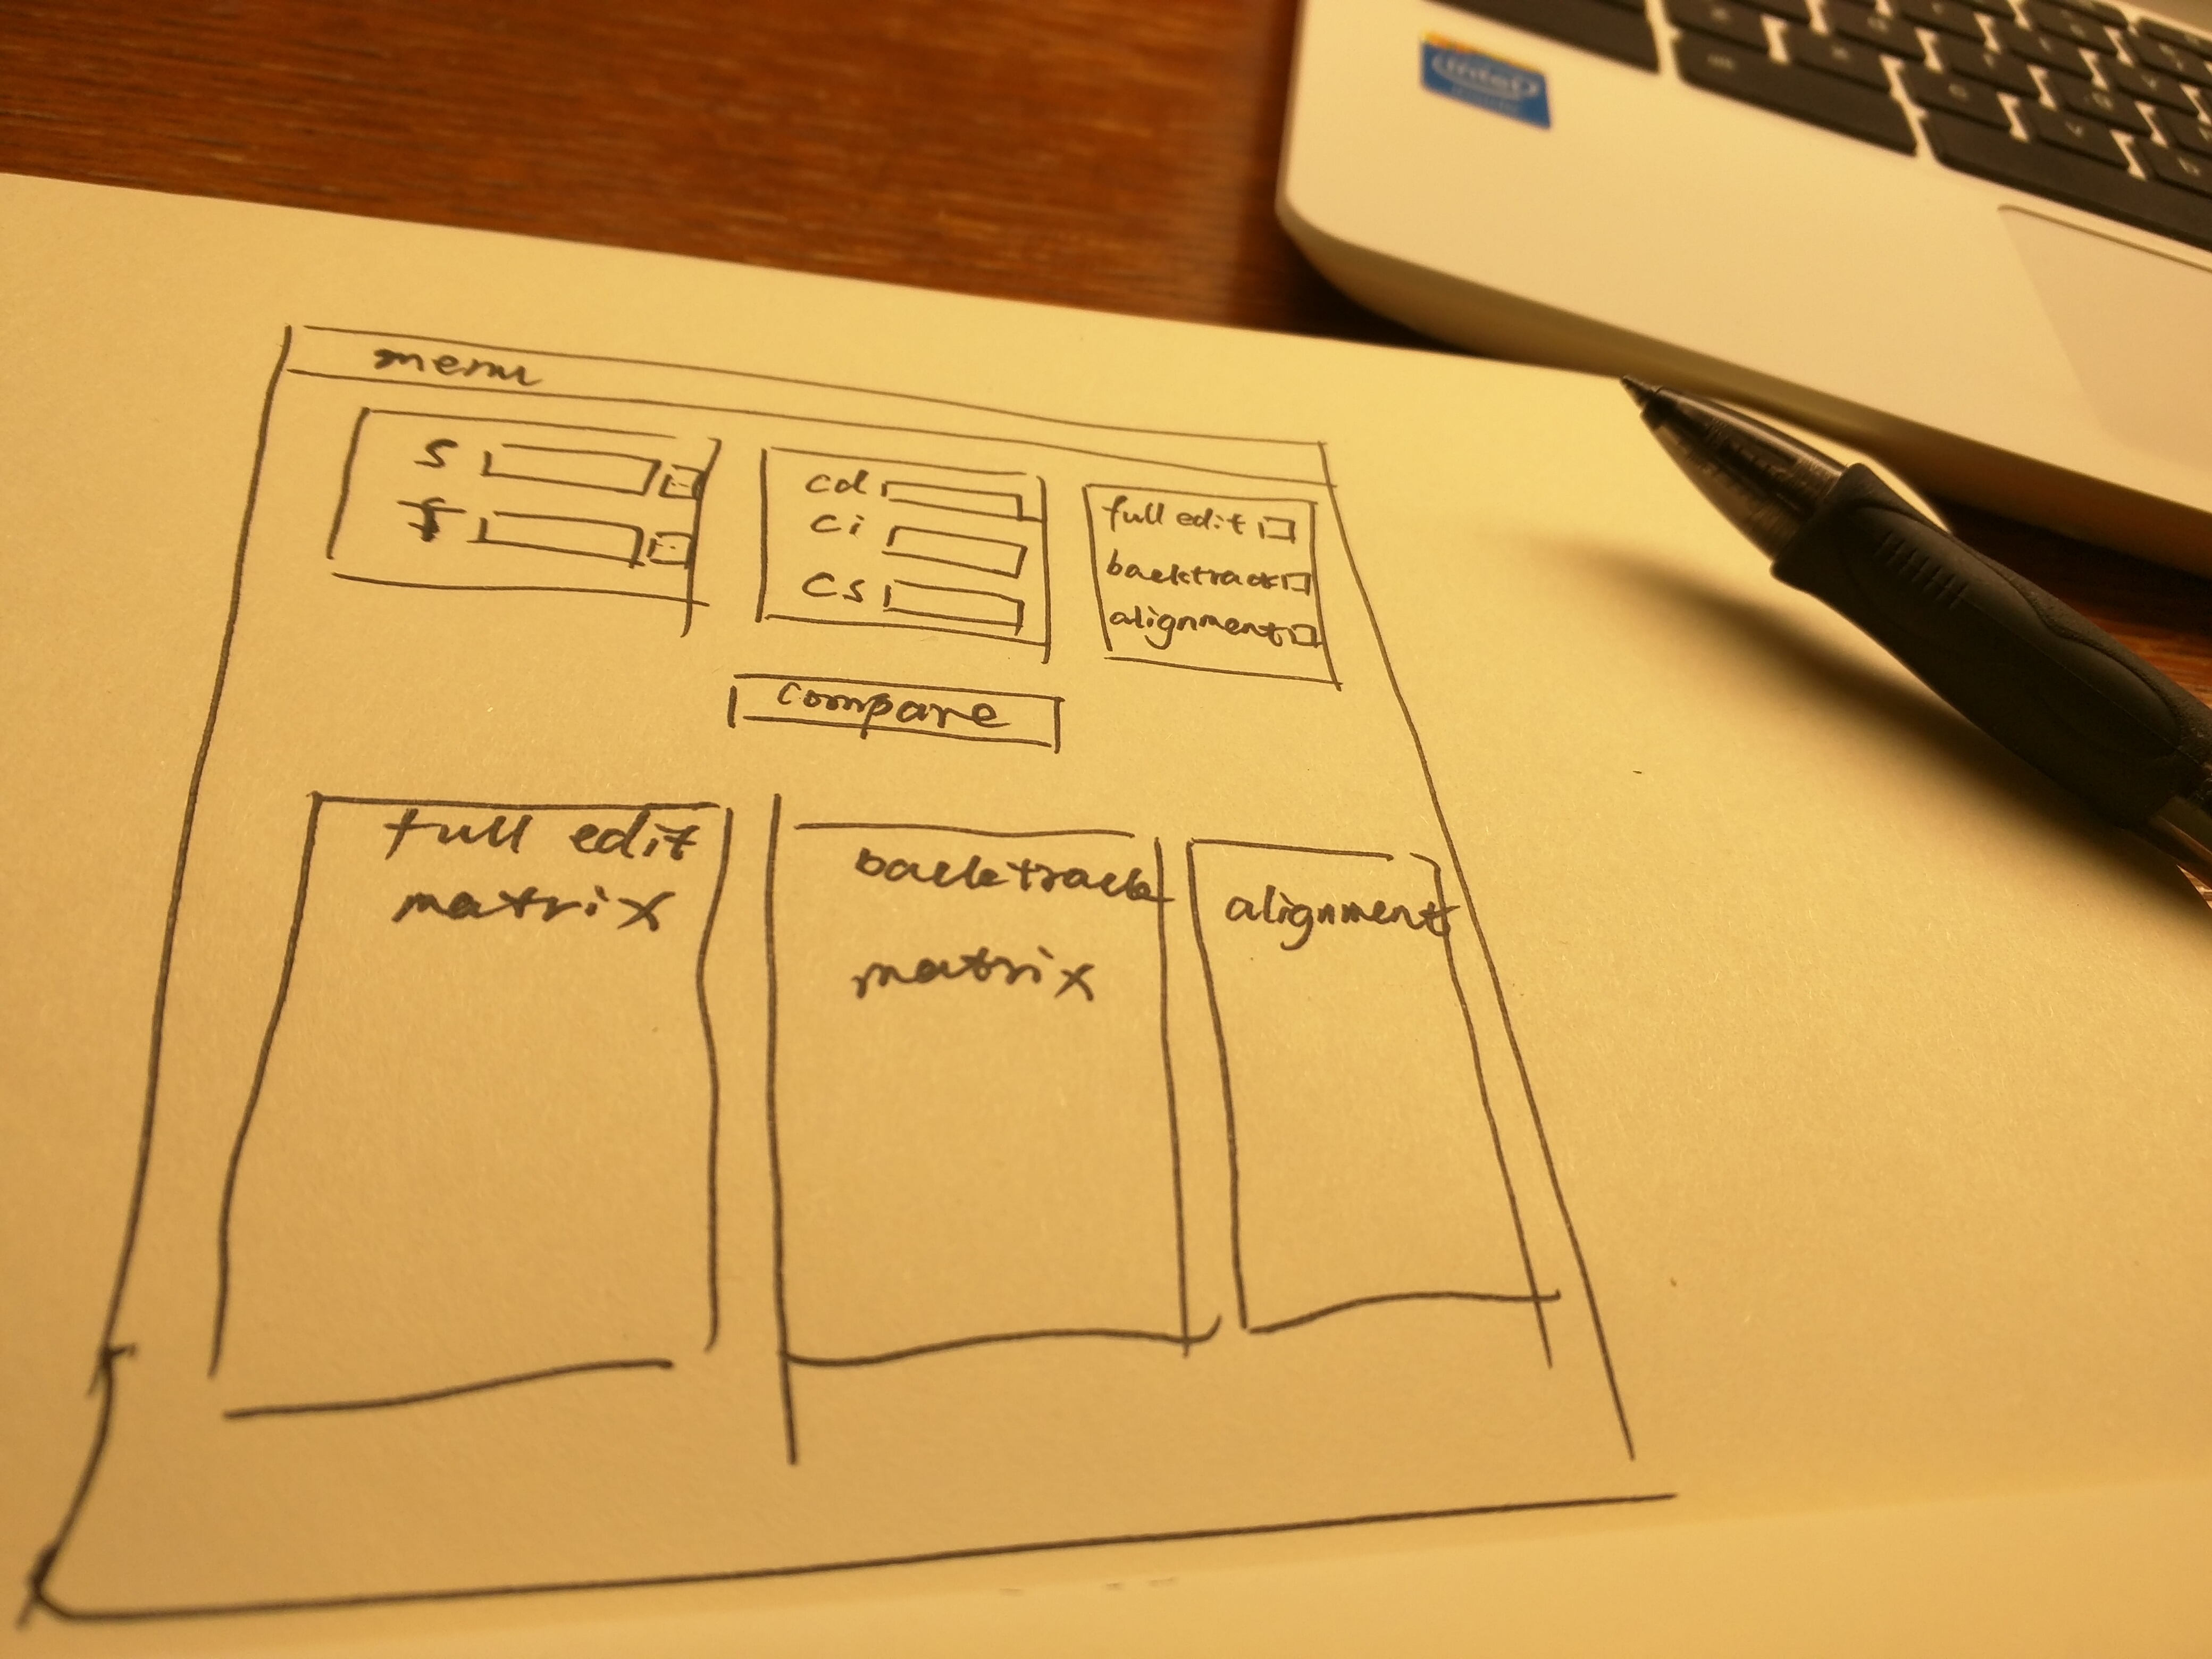 menu
S
T
cd
ci
cs
full edit
backtrack
alignment
compare
full edit
matrix
backtrack
matrix
alignment
intel
inside